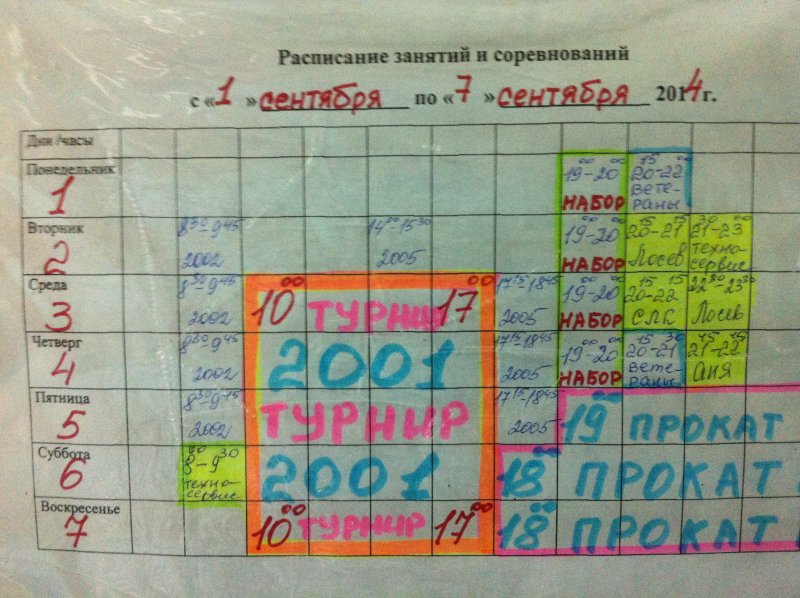 Расписание занятий и соревнований
с «1 »сентября по «7 »сентября 2014г.
Дни /часы
Понедельник
1
19⁰⁰-20⁰⁰ НАБОР
20¹⁵-22⁰⁰ Ветераны
Вторник
2
8³⁰-9⁴⁵ 2002
14⁰⁰-15³⁰ 2005
19⁰⁰-20⁰⁰ НАБОР
20¹⁵-21¹⁵ Лосев
21³⁰-23⁰⁰ техно-сервис
Среда
3
8³⁰-9⁴⁵ 2002
10⁰⁰ ТУРНИР 17⁰⁰
17¹⁵-18⁴⁵ 2005
19⁰⁰-20⁰⁰ НАБОР
20¹⁵-22¹⁵ СМК
22³⁰-23³⁰ Лосев
Четверг
4
8³⁰-9⁴⁵ 2002
2001
17¹⁵-18⁴⁵ 2005
19⁰⁰-20⁰⁰ НАБОР
20¹⁵-21³⁰ Ветераны
21⁴⁵-22⁴⁵ Аня
Пятница
5
8³⁰-9⁴⁵ 2002
ТУРНИР
17¹⁵-18⁴⁵ 2005
19⁰⁰ ПРОКАТ
Суббота
6
8⁰⁰-9³⁰ техно-сервис
2001
18⁰⁰ ПРОКАТ
Воскресенье
7
10⁰⁰ ТУРНИР 17⁰⁰
18⁰⁰ ПРОКАТ